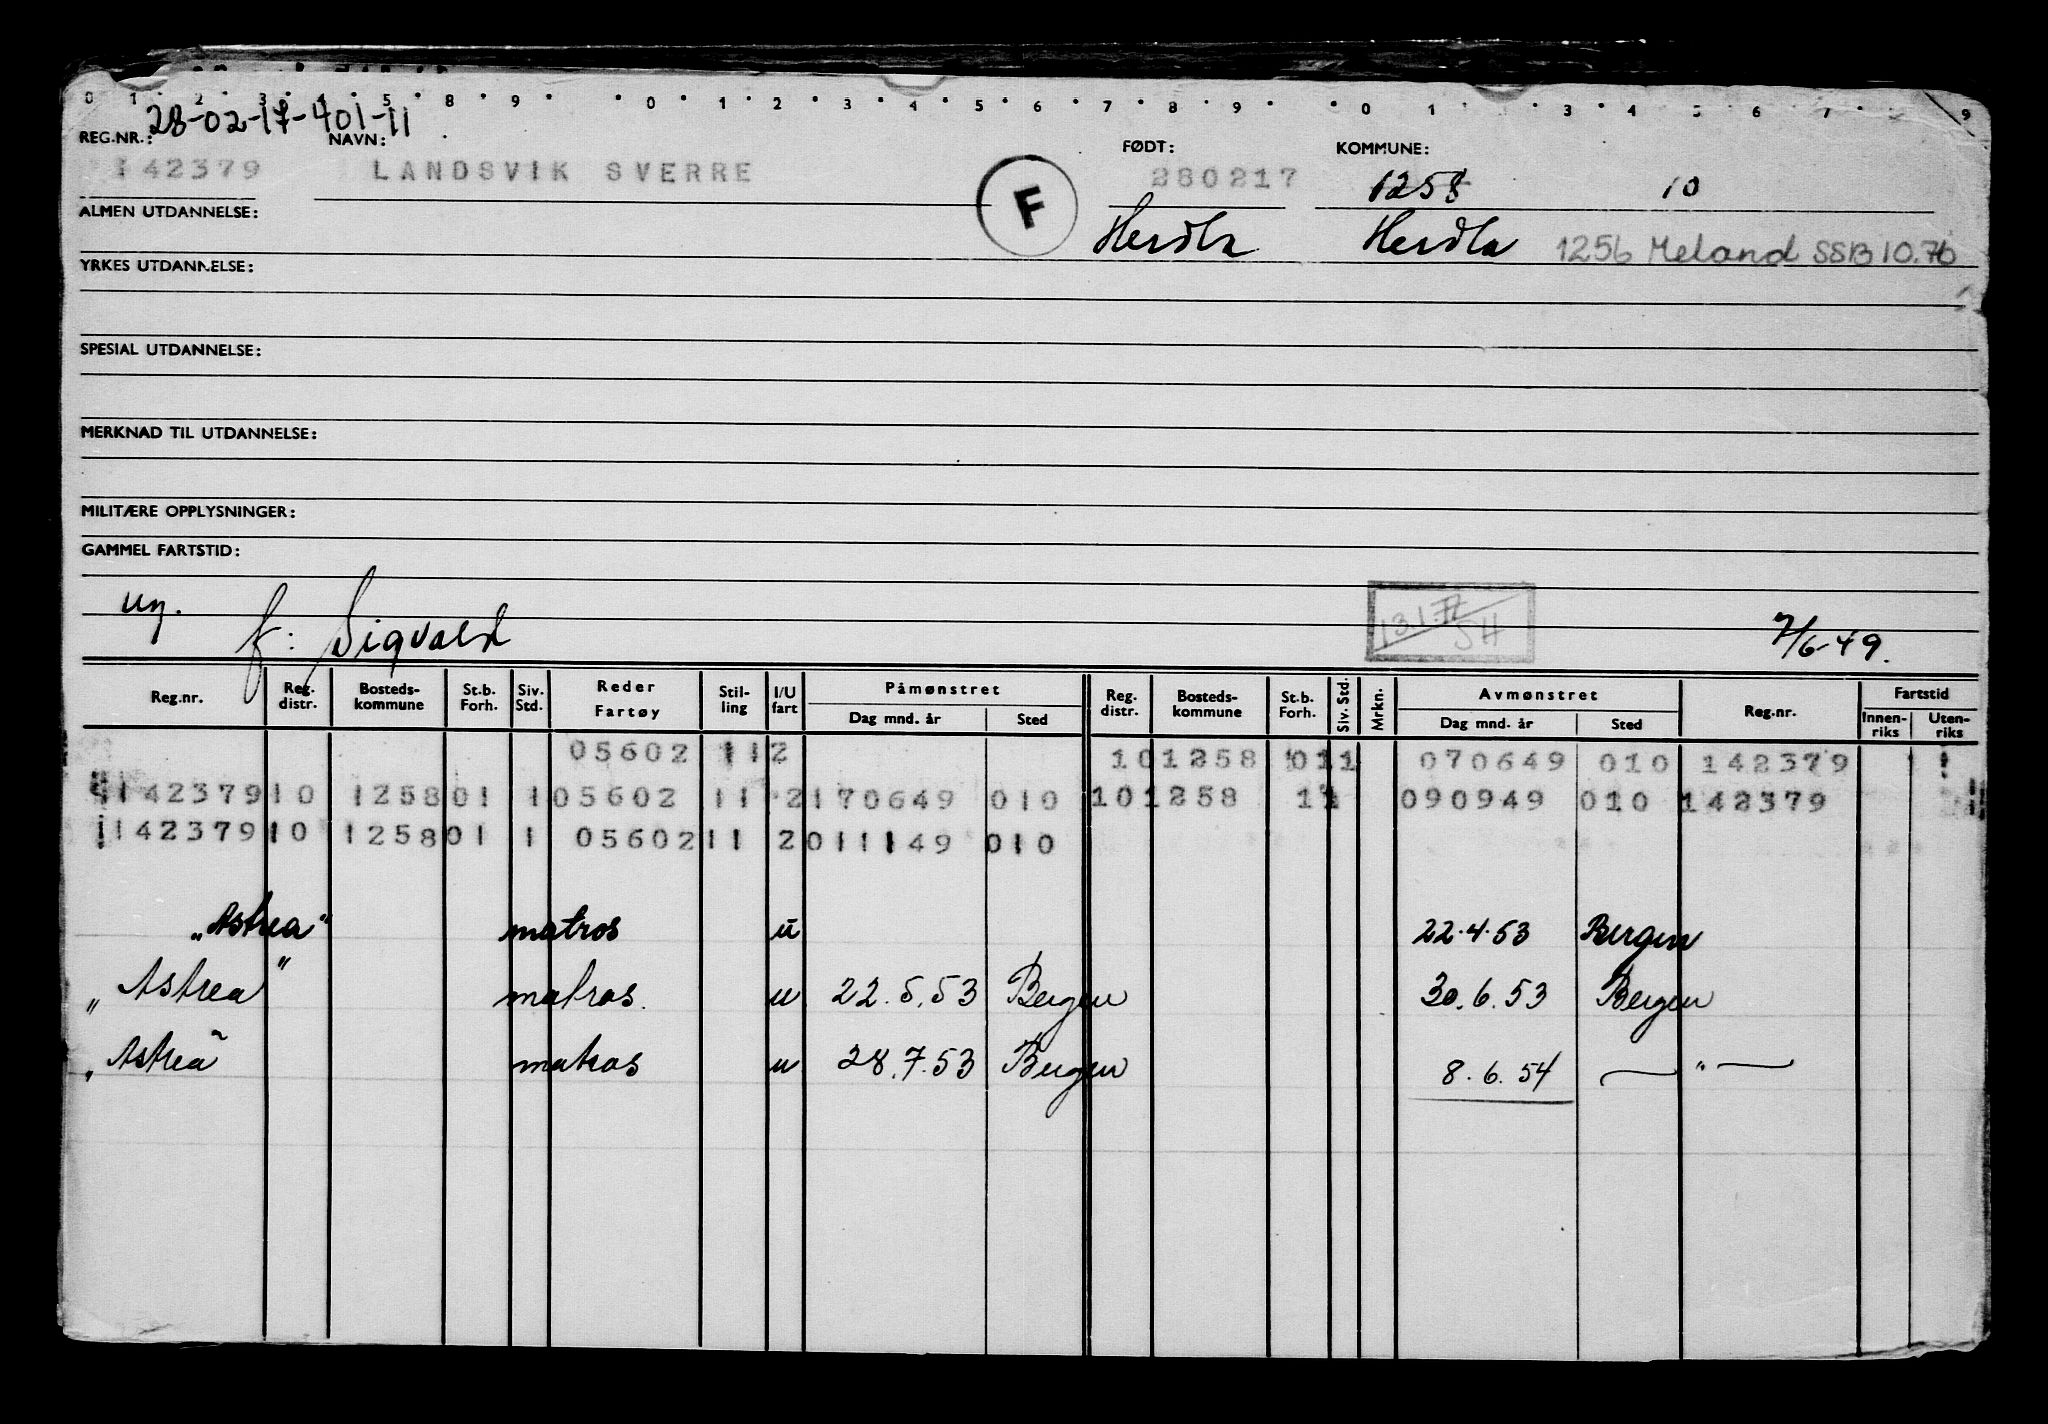 0 1 2 3 4 5 8 9 0 1 2 3 4 5 6 7 8 9 0 1 2 3 4 5 6 7 9
28-02-17-401-11
REG.NR.: NAVN: FØDT: KOMMUNE:
142379 LANDSVIK SVERRE F 280217 1258 10
ALMEN UTDANNELSE: Herdla Herdla 1256 Meland SSB 10.76
YRKES UTDANNELSE:
SPESIAL UTDANNELSE:
MERKNAD TIL UTDANNELSE:
MILITÆRE OPPLYSNINGER:
GAMMEL FARTSTID:
ug. f: Sigvald 13.1.77 SH 7/6-49.
Reg.nr. Reg. distr. Bosteds- kommune St.b. Forh. Siv. Std. Reder Fartøy Stil- ling I/U fart Påmønstret Dag mnd. år Sted Reg. distr. Bosteds- kommune St.b. Forh. Siv. Std. Mrkn. Avmønstret Dag mnd. år Sted Reg.nr. Fartstid Innen- riks Uten- riks
05602 11 2 10 1258 01 1 070649 010 142379
142379 10 1258 01 1 05602 11 2 170649 010 10 1258 1 1 090949 010 142379
142379 10 1258 01 1 05602 11 2 011149 010
"Astrea" matros u 22.4.53 Bergen
"Astrea" matros. u 22.5.53 Bergen 30.6.53 Bergen
"Astrea" matros u 28.7.53 Bergen 8.6.54 — " —